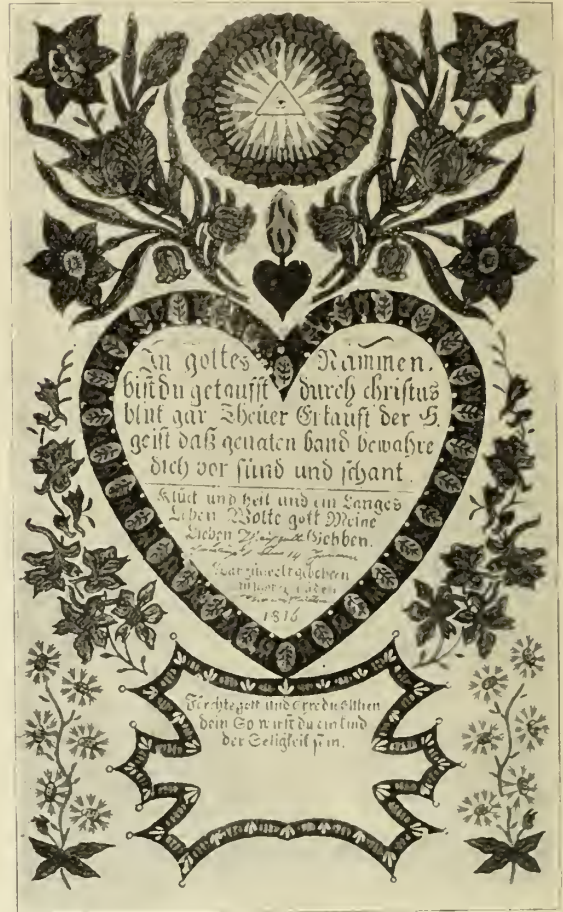 In gottes Nammen.
bist du getaufft durch christus
blut gar Theuer Erkauft der H.
geist daß genaten band bewahre
dich vor sünd und schant.
Klück und heil und ein Langes
Leben Wolte gott Meine
Lieben Giehben.
den 14
War zur welt gebohren

1816
Förchte gott und
dein So wirst du ein kind
der Seligkeit sein.